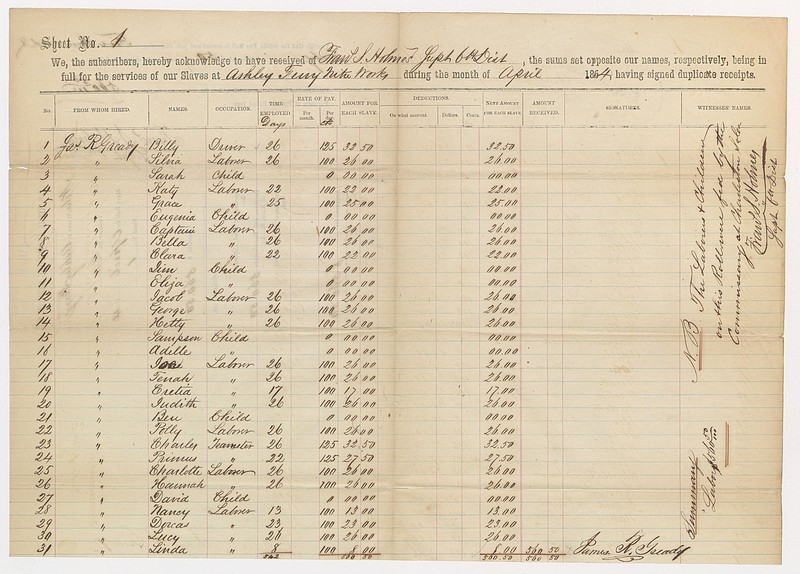 Sheet No. 1
We, the subscribers, hereby acknowledge to have received of Fran. S. Holmes Supt 6th Dist, the sums set opposite our names, respectively, being in
full for the services of our Slaves at Ashley Ferry Nitre Works during the month of April 1864, having signed duplicate receipts.
No. FROM WHOM HIRED. NAMES. OCCUPATION. TIME EMPLOYED Days RATE OF PAY. Per month. Per AMOUNT FOR EACH SLAVE. DEDUCTIONS. On what account. Dollars. Cents. NETT AMOUNT FOR EACH SLAVE. AMOUNT RECEIVED. SIGNATURES. WITNESSES' NAMES.
1 Jas. R. Gready Billy Driver 26 125 32 50 32.50
2 " Silvia Laborer 26 100 26 00 26.00
3 " Sarah Child 0 00 00 00.00
4 " Katy Laborer 22 100 22 00 22.00
5 " Grace " 25 100 25 00 25.00
6 " Eugenia Child 0 00 00 00.00
7 " Captain Laborer 26 100 26 00 26.00
8 " Bella " 26 100 26 00 26.00
9 " Clara " 22 100 22 00 22.00
10 " Jim Child 0 00 00 00.00
11 " Eliza " 0 00 00 00.00
12 " Jacob Laborer 26 100 26 00 26.00
13 " George " 26 100 26 00 26.00
14 " Hetty " 26 100 26 00 26.00
15 " Sampson Child 0 00 00 00.00
16 " Adelle " 0 00 00 00.00
17 " Laborer 26 100 26 00 26.00
18 " Tenah " 26 100 26 00 26.00
19 " Cretia " 17 100 17 00 17.00
20 " Judith " 26 100 26 00 26.00
21 " Ben Child 0 00 00 00.00
22 " Polly Laborer 26 100 26 00 26.00
23 " Charles Teamster 26 125 32 50 32.50
24 " Primus " 22 125 27 50 27.50
25 " Charlotte Laborer 26 100 26 00 26.00
26 " Hannah " 26 100 26 00 26.00
27 " David Child 0 00 00 00.00
28 " Nancy Laborer 13 100 13 00 13.00
29 " Dorcas " 23 100 23 00 23.00
30 " Lucy " 26 100 26 00 26.00
31 " Linda " 8 100 8 00 8.00 560 50 James R. Gready
560 50 560.50 560 50
N B The Laborers & Children
on this Roll were fed by the
Commissary at Charleston
Fran. S. Holmes
Supt 6th Dist
Summary
Labor $560 50